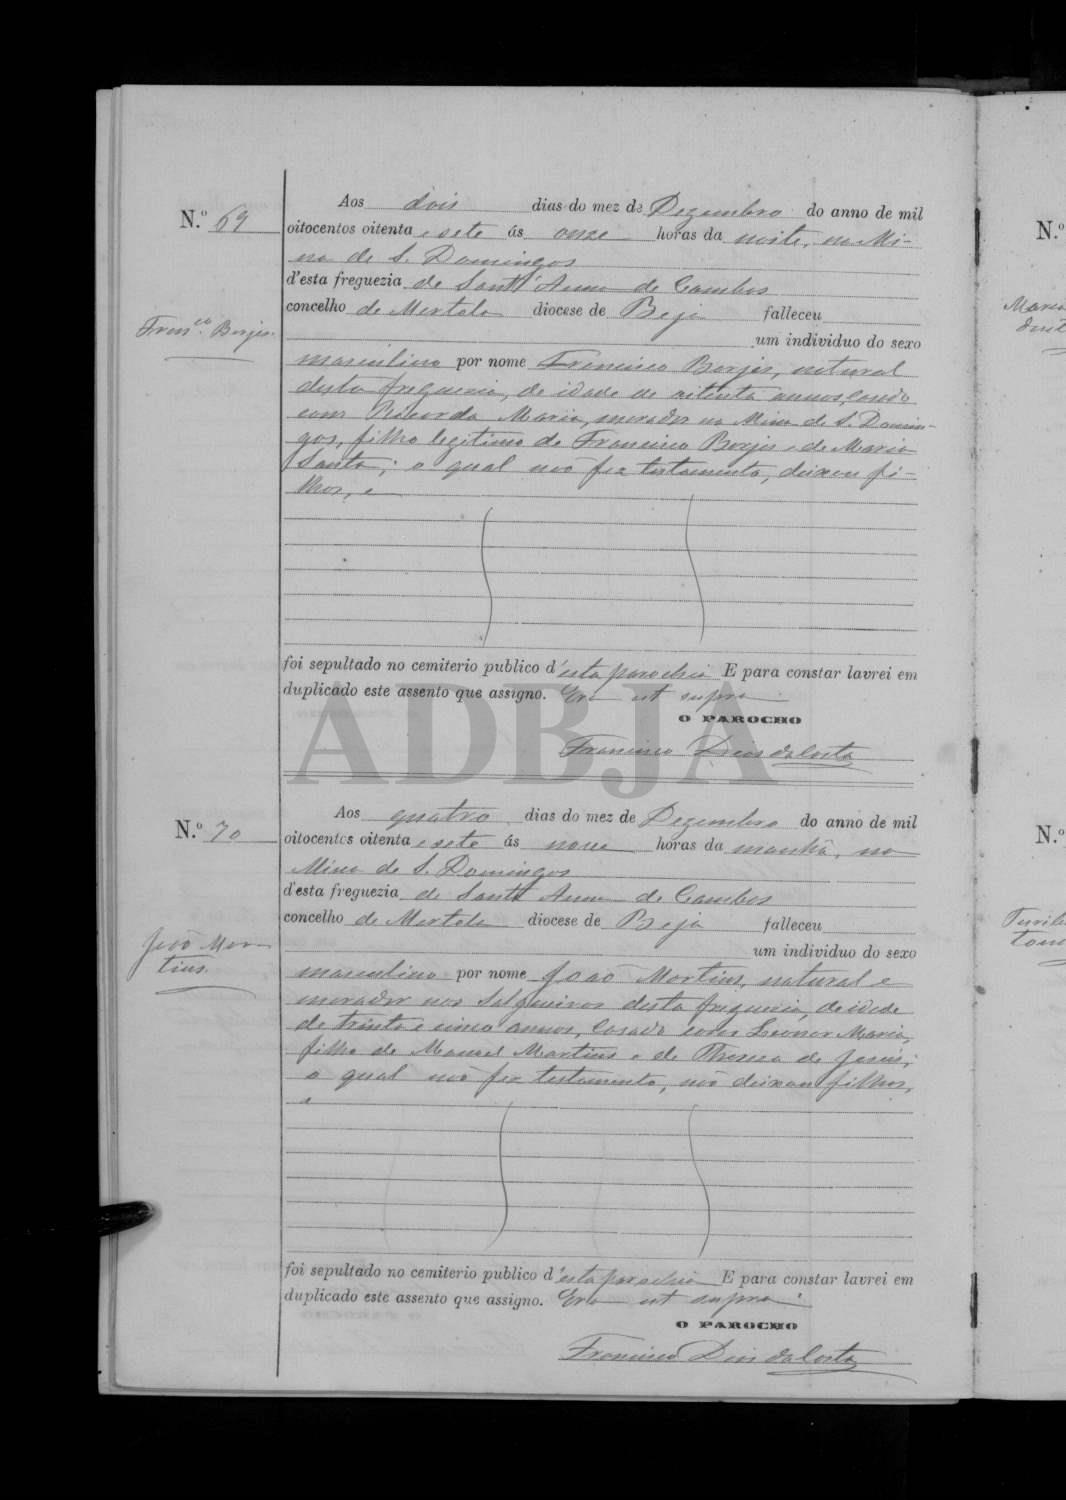 Aos dois dias do mez de Dezembro do anno de mil
N.º 69
oitocentos oitenta e sete ás onze horas da noite, na Mi-
na de S. Domingos
d'esta freguezia de Sant'Anna de Cambas
concelho de Mertola diocese de Beja falleceu
Fran.co Borges.
um individuo do sexo
masculino por nome Francisco Borges, natural
desta freguezia, de idade de oitenta annos, casado
com Ricarda Maria, morador na Mina de S. Domin-
gos, filho legitimo de Francisco Borges e de Maria
Santa; o qual não fez testamento, deixou fi-
lhos, e
foi sepultado no cemiterio publico d'esta parochia E para constar lavrei em
duplicado este assento que assigno. Era ut supra
O PAROCHO
Francisco Dias da Costa
ADBJA
Aos quatro dias do mez de Dezembro do anno de mil
N.º 70
oitocentos oitenta e sete ás nove horas da manhã, na
Mina de S. Domingos
d'esta freguezia de Santa Anna de Cambas
concelho de Mertola diocese de Beja falleceu
João Mar-
tins.
um individuo do sexo
masculino por nome João Martins, natural e
morador nos Salgueiros desta freguezia, de idade
de trinta e cinco annos, casado com Leonor Maria,
filho de Manoel Martins e de Thereza de Jesus;
o qual não fez testamento, não deixou filhos,
e
foi sepultado no cemiterio publico d'esta parochia E para constar lavrei em
duplicado este assento que assigno. Era ut supra
O PAROCHO
Francisco Dias da Costa
N.º
Maria
N.º